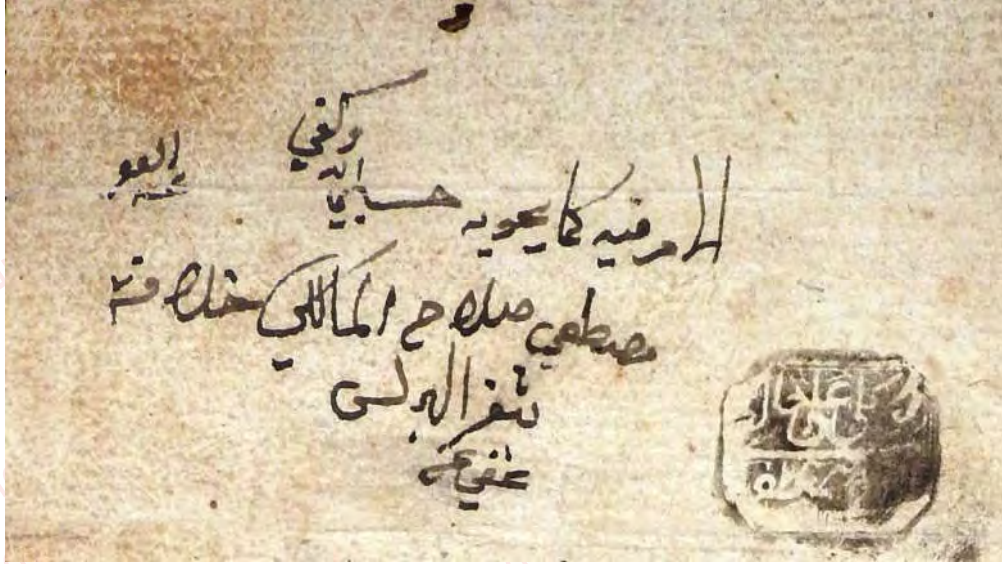 الامر فيه كما يحويه حسبي الله وكفي
مصطفي صلاح المالكي خلافة
بثغر البرلس
عفي عنه